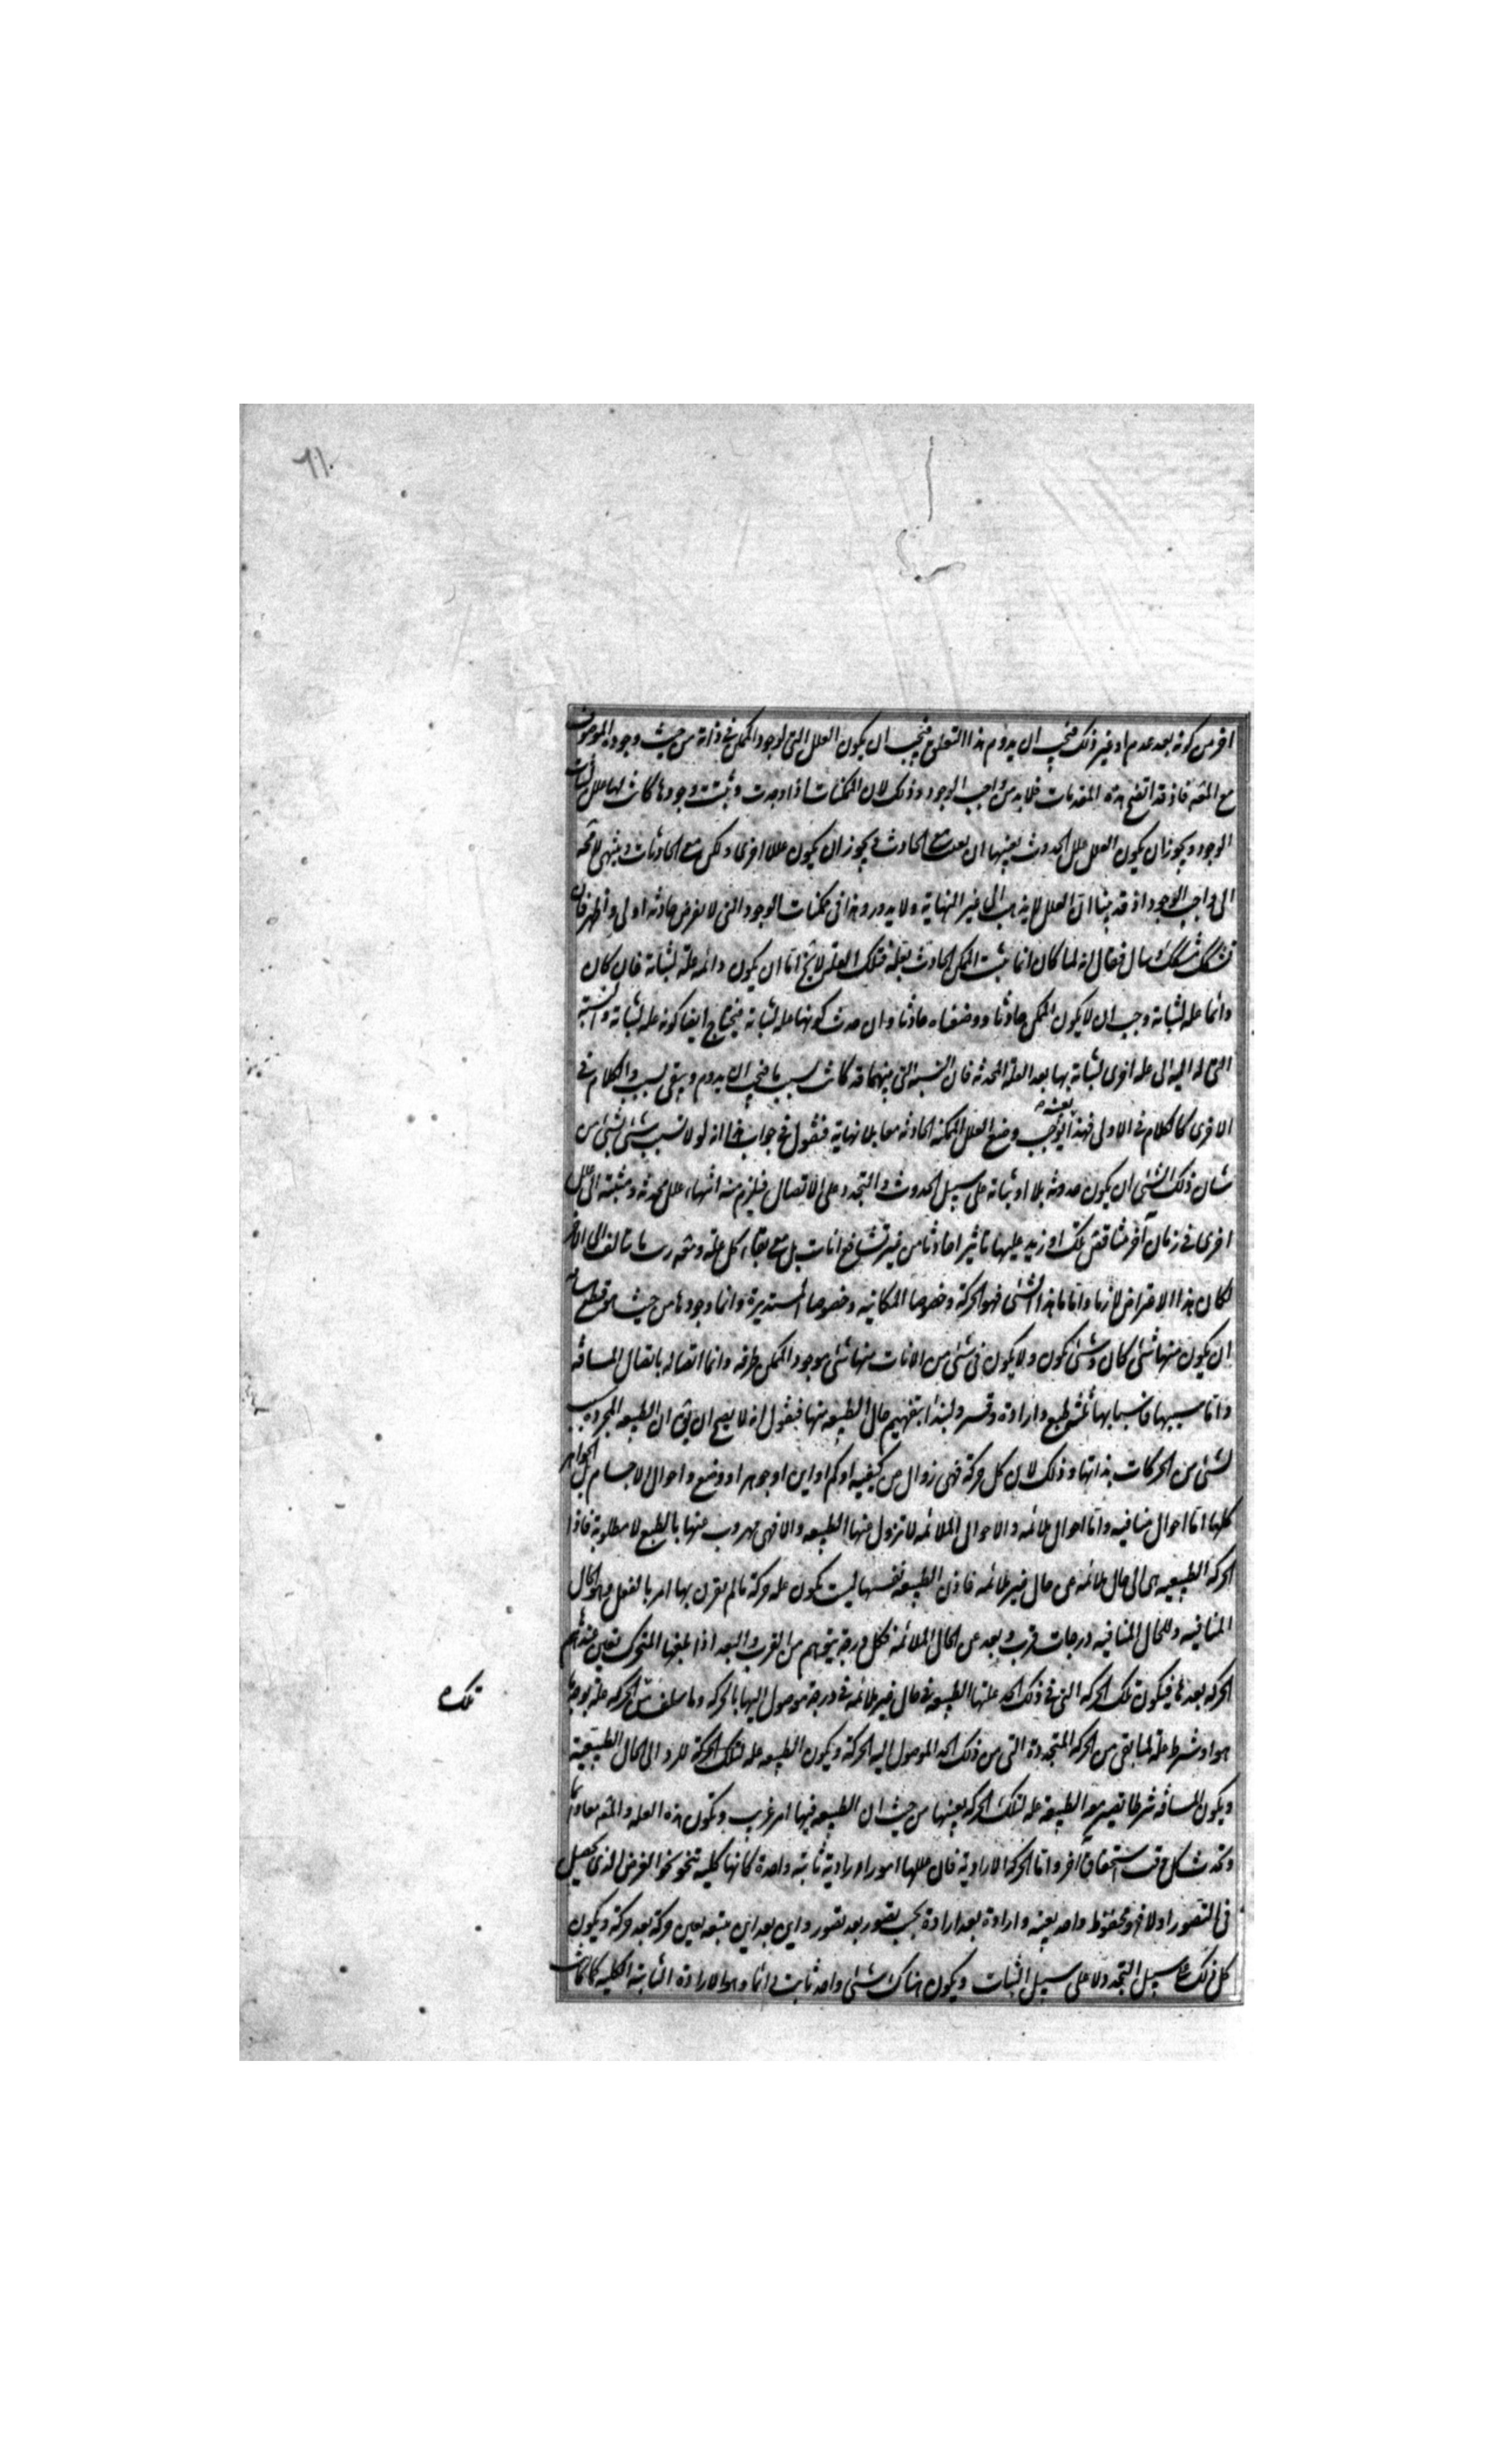 ٦١
اخر من كونه بعد عدم او غير ذلك فيجب ان يدوم هذا التعلق فيجب ان يكون العلل التى لوجود الممكن فى ذاته من حيث وجوده الموصوف
مع المعلول فاذ قد اتضح هذه المقدمات فلا بد من واجب الوجود وذلك لان الممكنات اذا وجدت وثبت وجودها كانت لها علل لثبات
الوجود ويجوز ان يكون العلل علل الحدوث بعينها ان بقيت مع الحادث ويجوز ان يكون عللا اخرى ولكن مع الحادثات وينتهى لا محه
الى واجب الوجود اذ قد بينا ان العلل لا يذهب الى غير النهاية ولا يدور وهذا فى ممكنات الوجود التى لا يفرض حادثه اولى واظهر فان
تشكك متشكك وسال فقال انه لما كان انما يثبت الممكن الحادث بعلة فتلك العلة لا يخ اما ان يكون دائمه علة لثباته فان كان
دائما علة لثباته وجب ان لا يكون الممكن حادثا ووضعناه حادثا وان حدث كونها علة لثباته فيحتاج ايضا كونه علة لثباته والنسبة
التى له اليه الى علة اخرى لثباته بها بعد العلة المحدثه فان النسبه التى بينهما قد كانت بسبب ما فيجب ان يدوم ويبقى بسبب والكلام فى
الاخرى كالكلام فى الاولى فهذا يوجب بعينه وضع العلل الممكنه الحادثه معا بلا نهاية فنقول فى جواب هذا انه لولا سبب شئ لشئ من
شان ذلك الشئ ان يكون حدوثه بلا ثباته على سبيل الحدوث والتجدد على الاتصال فيلزم منه انتهاء علل محدثه ومثبته الى علل
اخرى فى زمان آخر متناقض تلك او زيد عليها تاثيرا حادثا من غير تشافع انات بل مع بقاء كل علة ومعلول ريثما يتالف الى الاخر
لكان هذا الاعتراض لازما واما ما هذا الشئ فهو الحركة وخصوصا المكانيه وخصوصا المستديرة وانما وجودها من حيث هو قطع مسافه
ان يكون منها شئ كان وشئ يكون ولا يكون فى شئ من الانات منها شئ موجود لكن طرفه وانما اتصاله باتصال المسافه
واما سببها فاسبابها ثلثه طبع وارادة وقسر ولنبدا بتفهيم حال الطبيعه منها فنقول انه لا يصح ان يق ان الطبيعه المجرده سبب
لشئ من الحركات بذاتها وذلك لان كل حركة فهى زوال من كيفيه او كم او اين او جوهر او وضع واحوال الاجسام بل الجواهر
كلها اما احوال منافيه واما احوال ملائمه والاحوال الملائمه لا تزول عنها الطبيعه والا فهى مهروب عنها بالطبع لا مطلوبة فاذا
الحركه الطبيعيه هى الى حال ملائمه عن حال غير ملائمه فاذن الطبيعه نفسها ليست تكون علة حركة ما لم يقرن بها امر بالفعل وهو الحال
المنافيه وللحال المنافيه درجات قرب وبعد عن الحال الملائمة فكل درجة يتوهم من القرب والبعد اذا بلغها المتحرك تعين عندها
الحركه بعدها فيكون تلك الحركه التى فى ذلك الحد علتها الطبيعه فى حال غير ملائمه فى درجة موصول اليها بالحركه وما سلف من الحركه علة بوجه ما
تلك ه
هو او شرط علة لما بقى من الحركه المتجددة التى من ذلك الحد الموصول اليه بالحركة ويكون الطبيعه علة لتلك الحركة للرد الى الحال الطبيعية
ويكون المسافه شرطا تصير مع الطبيعة علة لتلك الحركه بعينها من حيث ان الطبيعه فيها امر غريب وتكون هذه العله والمعلول معا دائما
وتحدث كل وقت استحقاق آخر واما الحركه الاراديه فان عللها امور اراديه ثابته واحدة كانها كلية تنحو نحو الغرض الذى يحصل
فى التصور اولا فهو محفوظ واحد بعينه وارادة بعد ارادة بحسب تصور بعد تصور واين بعد اين يتبعه بعين حركة بعد حركة ويكون
كل ذلك على سبيل التجدد لا على سبيل الثبات ويكون هناك شئ واحد ثابت دائما وهو الارادة الثابتة الكلية كما كانت